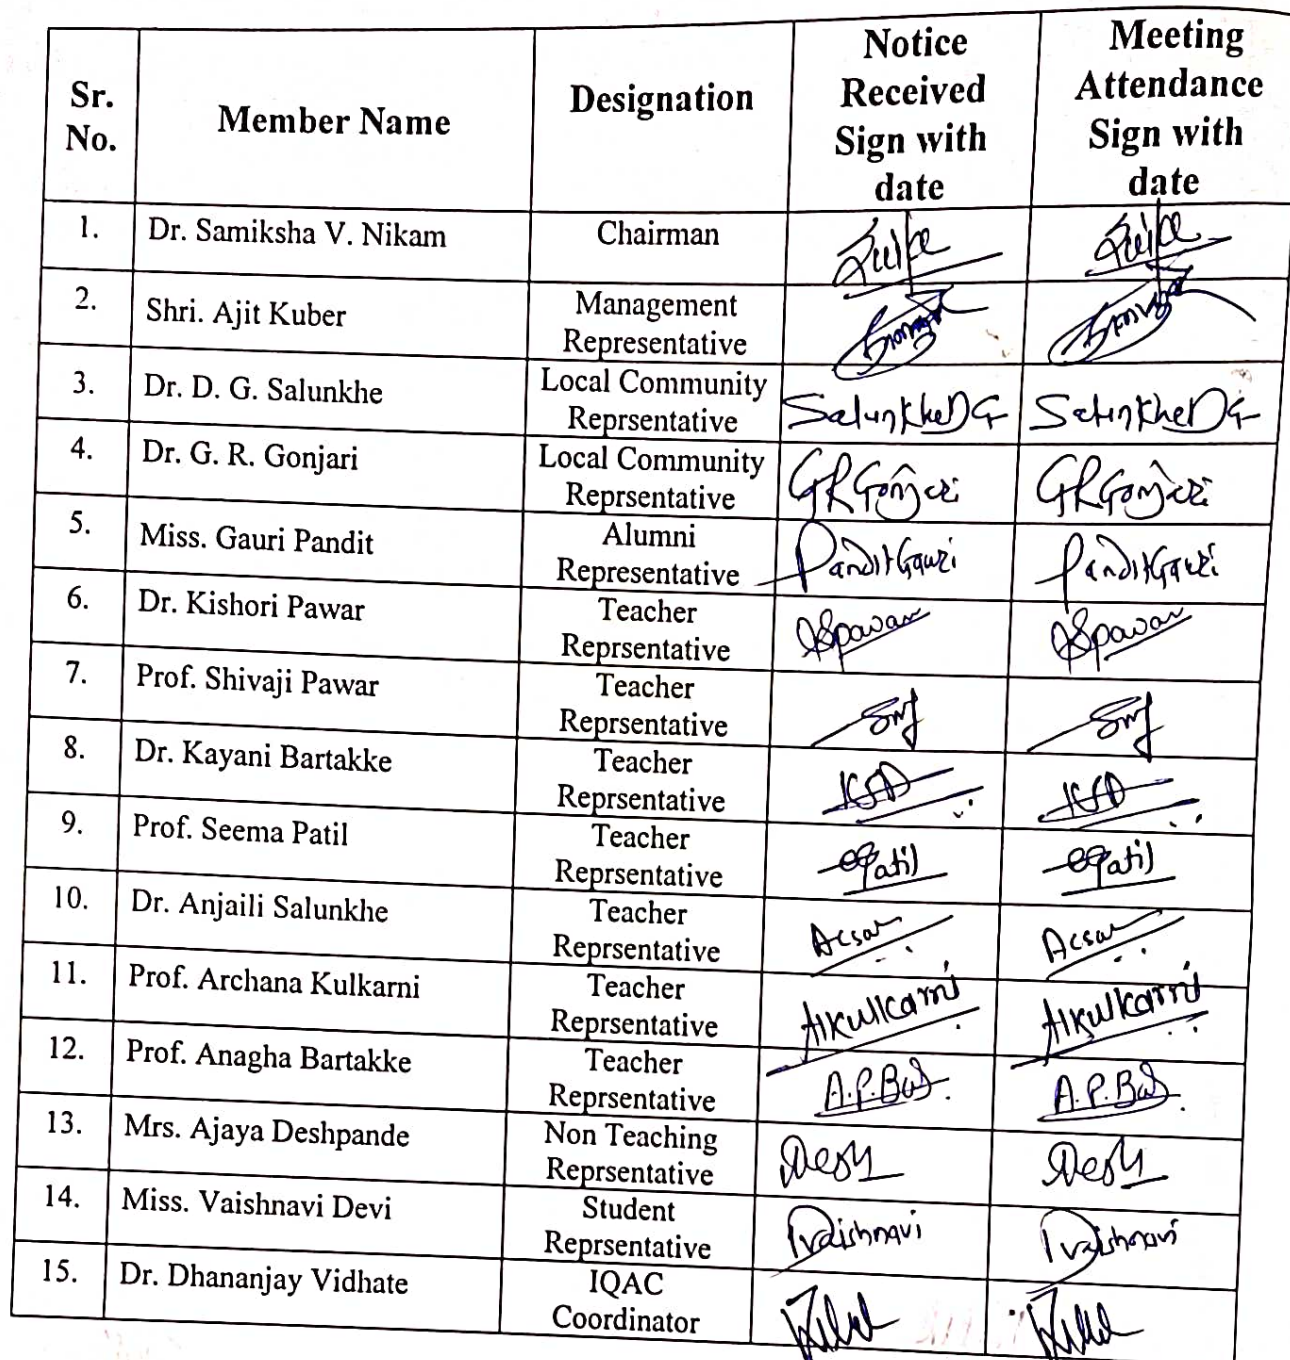 Sr. No. Member Name Designation Notice Received Sign with date Meeting Attendance Sign with date
1. Dr. Samiksha V. Nikam Chairman
2. Shri. Ajit Kuber Management Representative
3. Dr. D. G. Salunkhe Local Community Reprsentative Salunkhe DG Salunkhe DG
4. Dr. G. R. Gonjari Local Community Reprsentative GRGonjari GRGonjari
5. Miss. Gauri Pandit Alumni Representative Pandit Gauri Pandit Gauri
6. Dr. Kishori Pawar Teacher Reprsentative
7. Prof. Shivaji Pawar Teacher Reprsentative
8. Dr. Kayani Bartakke Teacher Reprsentative
9. Prof. Seema Patil Teacher Reprsentative
10. Dr. Anjaili Salunkhe Teacher Reprsentative
11. Prof. Archana Kulkarni Teacher Reprsentative AKulkarni AKulkarni
12. Prof. Anagha Bartakke Teacher Reprsentative
13. Mrs. Ajaya Deshpande Non Teaching Reprsentative
14. Miss. Vaishnavi Devi Student Reprsentative
15. Dr. Dhananjay Vidhate IQAC Coordinator